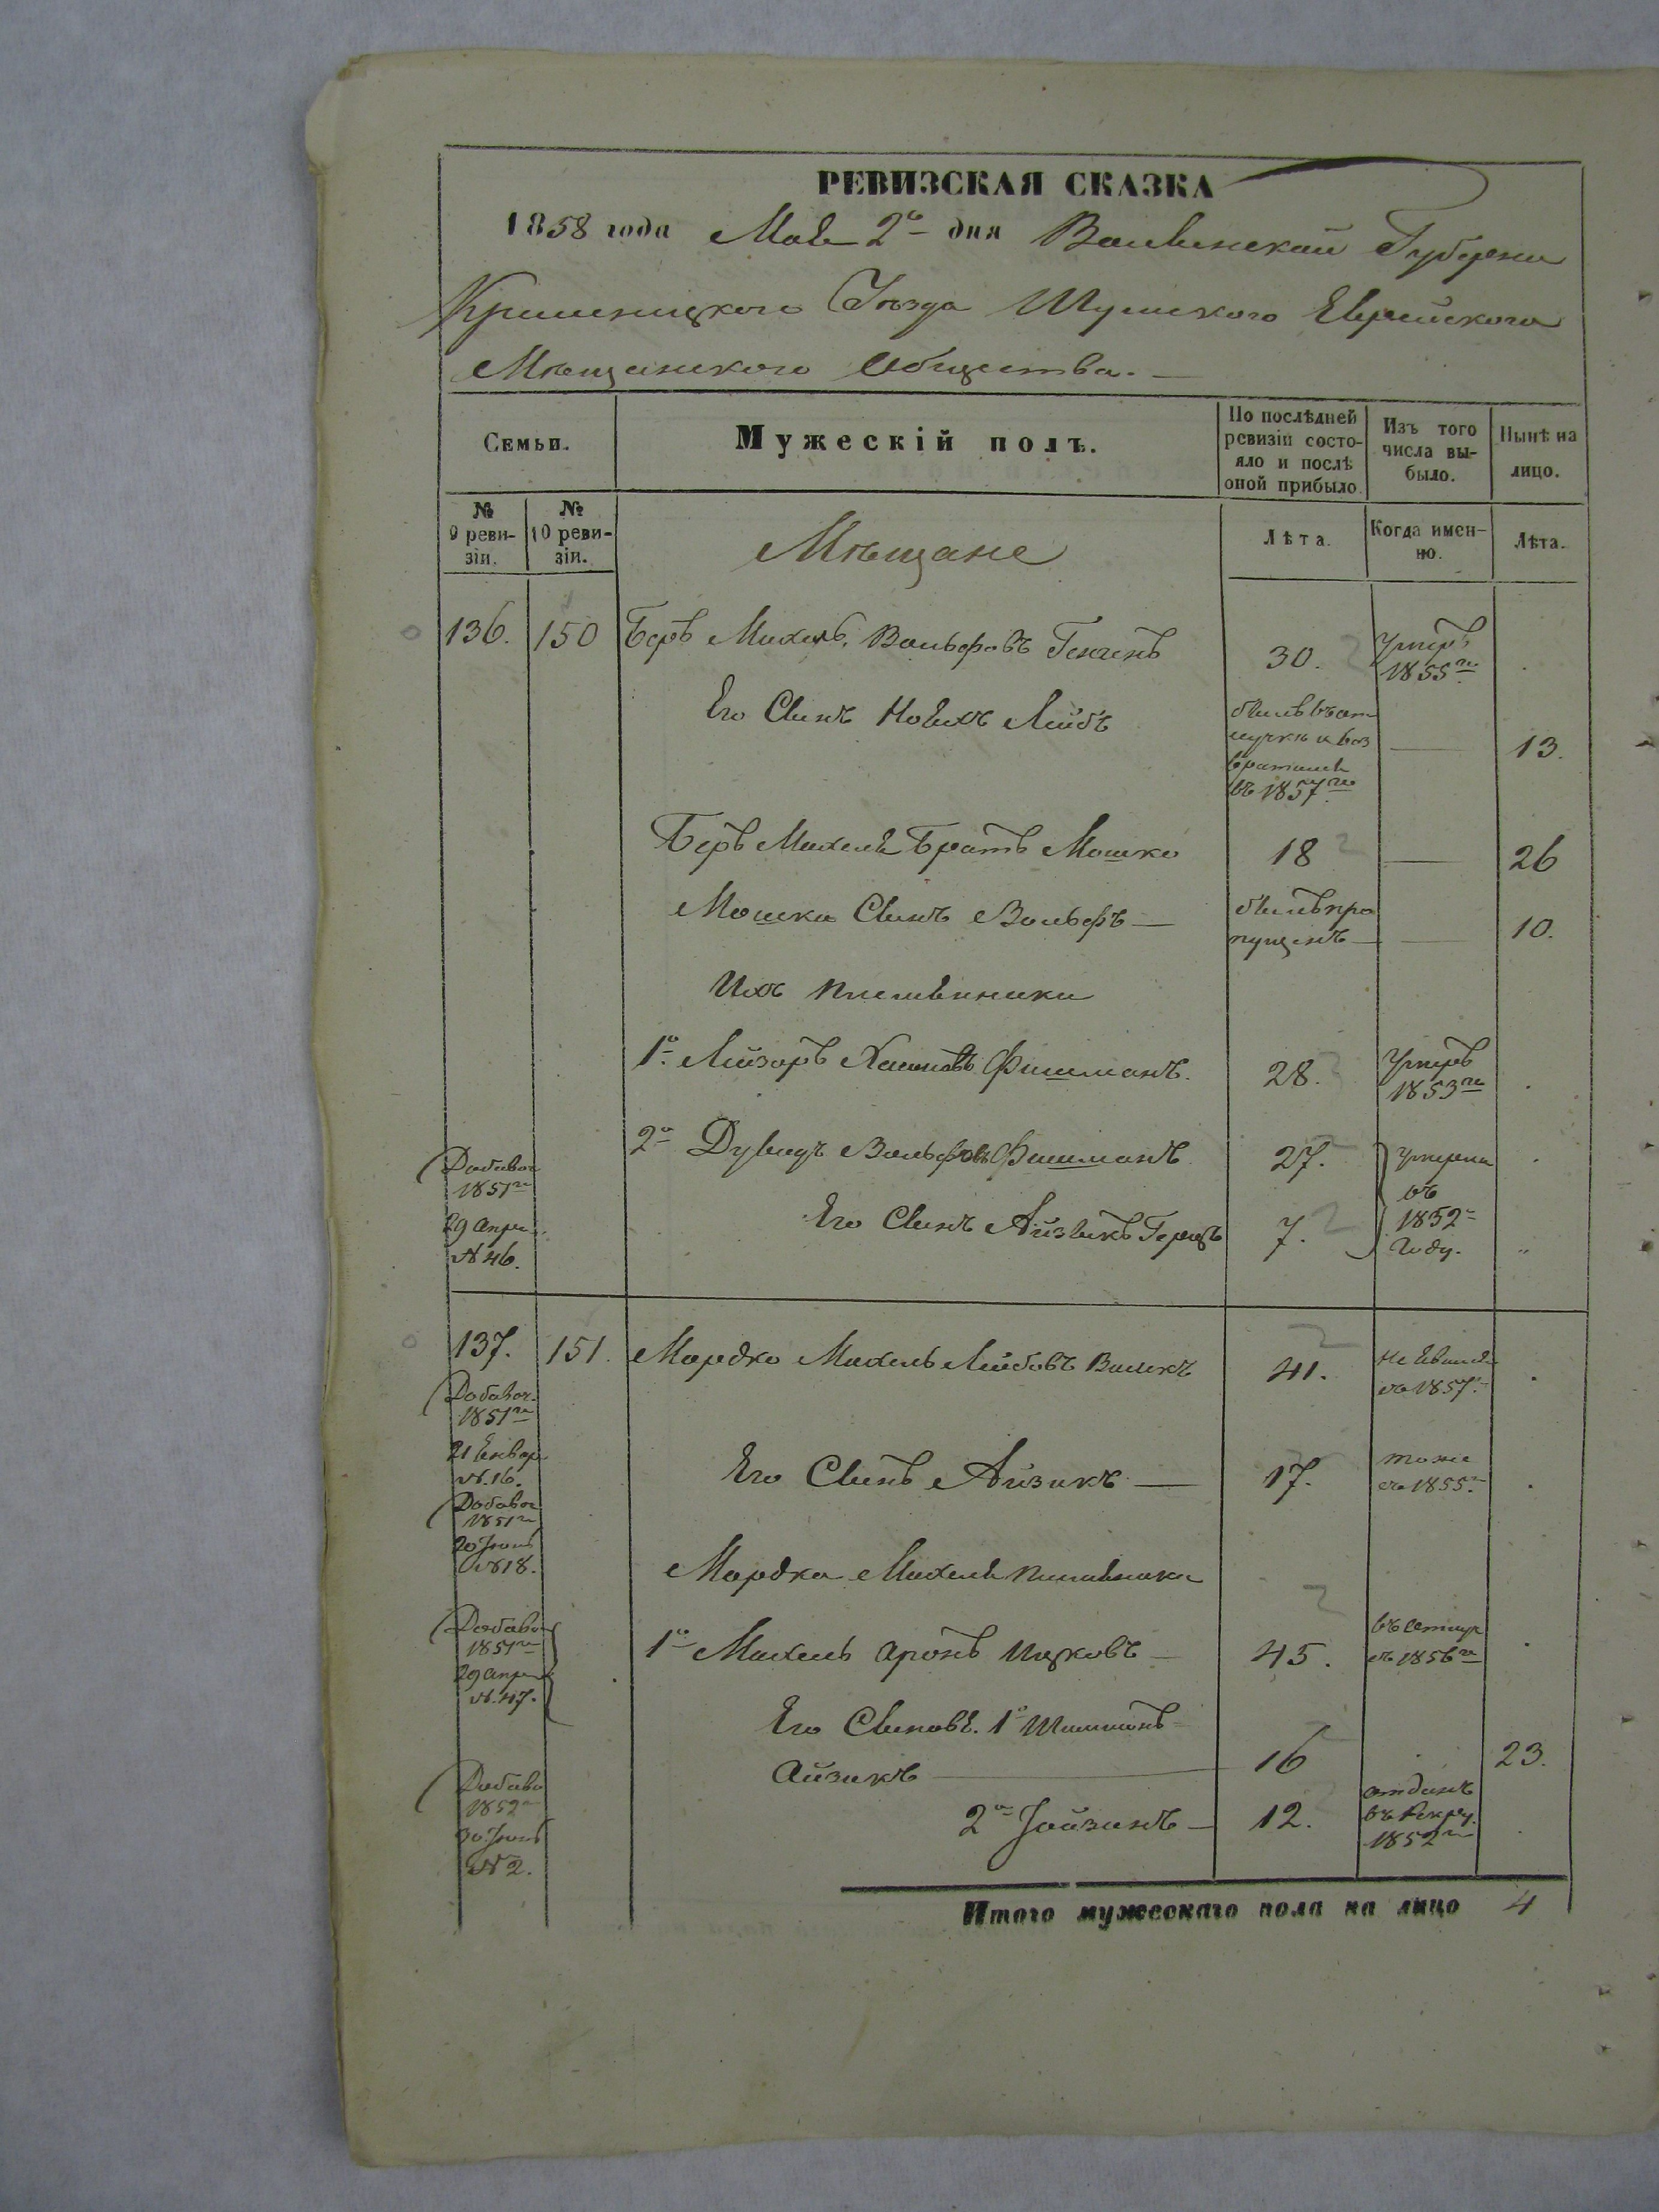 РЕВИЗСКАЯ СКАЗКА
1858 года Мая 2го дня Волынской Губернии
Кременецкого Уѣзда Шумского Еврейского
Мѣщанского Общества.
Семьи.
Мужескій полъ.
По послѣдней ревизіи состояло и послѣ оной прибыло
Изъ того числа выбыло.
Нынѣ на лицо.
№ 9 ревизіи.
№ 10 ревизіи.
Мѣщане
Лѣта.
Когда именно.
Лѣта.
136. 150 Беръ Михель Вольфовъ 30. Умеръ 1855го
Его Сынъ Лейбъ былъ въ отлучкѣ и возвратился въ 1857го — 13.
Беръ Михеля Братъ Мошко 18 — 26
Мошка Сынъ Вольфъ — былъ пропущенъ — — 10.
Ихъ племянники
1о Лейзоръ Фишманъ. 28. Умеръ 1853го
2о Дувидъ Вольфовъ Фишманъ 27. умерли въ 1852го Году.
Добавоч 1851го 29 Апре №46.
Его Сынъ Айзикъ Герцъ 7.
137. 151. Мордко Михель Лейбовъ 41. не явился съ 1857.
Добавоч. 1851го 21 Января №.16.
Его Сынъ Айзикъ — 17. тоже съ 1855.
Добавоч 1851го 20 Іюня №18.
Мордка Михеля племянники
Добавоч 1851го 29 Апреля №.47.
1о Михель Аронъ Ицковъ — 45. въ отлуч съ 1856го
Его Сыновя. 1о Шимонъ
Айзикъ — 16 23.
Добаво 1852го 30 Іюня №2.
2о — 12. отданъ въ Рекру. 1852го
Итого мужескаго пола на лицо 4